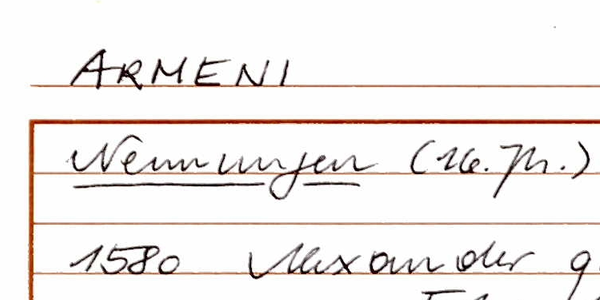 ARMENI
Nennungen (16. Jh.)
1580 Alexander